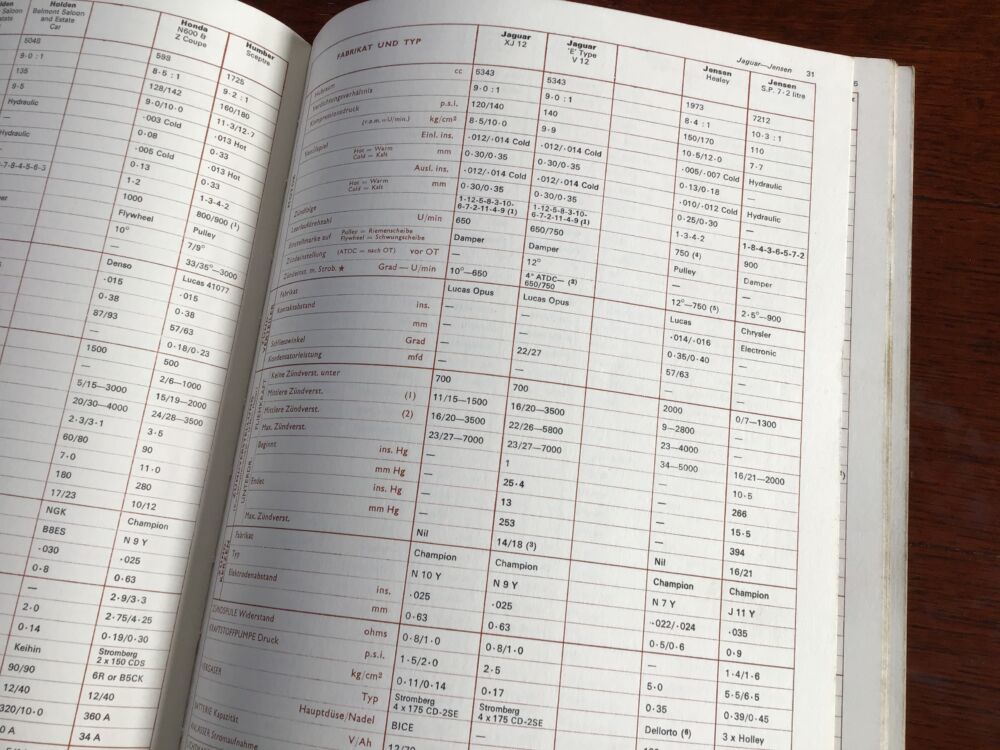 Holden
Belmont Saloon
and Estate
Car
Honda
N600 &
Z Coupe
Humber
Sceptre
5048 598 1725
9·0 : 1 8·5 : 1 9·2 : 1
135 128/142 160/180
9·5 9·0/10·0 11·3/12·7
Hydraulic ·003 Cold ·013 Hot
— 0·08 0·33
Hydraulic ·005 Cold ·013 Hot
— 0·13 0·33
-7-8-4-5-6-3 1-2 1-3-4-2
1000 800/900 (¹)
Flywheel Pulley
10° 7/9°
33/35°—3000
Denso Lucas 41077
·015 ·015
0·38 0·38
87/93 57/63
— 0·18/0·23
1500 500
— 2/6—1000
5/15—3000 15/19—2000
20/30—4000 24/28—3500
2·3/3·1 3·5
60/80 90
7·0 11·0
180 280
17/23 10/12
NGK Champion
B8ES N 9 Y
·030 ·025
0·8 0·63
— 2·9/3·3
2·0 2·75/4·25
0·14 0·19/0·30
Keihin Stromberg
2 x 150 CDS
90/90 6R or B5CK
12/40 12/40
320/10·0 360 A
34 A
Jaguar—Jensen 31
FABRIKAT UND TYP
Jaguar
XJ 12
Jaguar
'E' Type
V 12
Jensen
Healey
Jensen
S.P. 7·2 litre
Hubraum cc 5343 5343 1973 7212
Verdichtungsverhältnis 9·0 : 1 9·0 : 1 8·4 : 1 10·3 : 1
Kompressionsdruck p.s.i. 120/140 140 150/170 110
(r.p.m.=U/min.) kg/cm² 8·5/10·0 9·9 10·5/12·0 7·7
Ventilspiel Einl. ins. ·012/·014 Cold ·012/·014 Cold ·005/·007 Cold Hydraulic
Hot = Warm
Cold = Kalt mm 0·30/0·35 0·30/0·35 0·13/0·18 —
Ausl. ins. ·012/·014 Cold ·012/·014 Cold ·010/·012 Cold Hydraulic
Hot = Warm
Cold = Kalt mm 0·30/0·35 0·30/0·35 0·25/0·30 —
Zündfolge 1-12-5-8-3-10-
6-7-2-11-4-9 (1) 1-12-5-8-3-10-
6-7-2-11-4-9 (1) 1-3-4-2 1-8-4-3-6-5-7-2
Leerlaufdrehzahl U/min 650 650/750 750 (⁴) 900
Einstellmarke auf Pulley = Riemenscheibe
Flywheel = Schwungscheibe Damper Damper Pulley Damper
Zündeinstellung (ATDC = nach OT) vor OT — 12° — —
Zündeinst. m. Strob. ★ Grad — U/min 10°—650 4° ATDC— (²)
650/750 12°—750 (⁵) 2·5°—900
Fabrikat Lucas Opus Lucas Opus Lucas Chrysler
Kontaktabstand ins. — — ·014/·016 Electronic
mm — — 0·35/0·40 —
Schliesswinkel Grad — 22/27 57/63 —
Kondensatorleistung mfd — — — —
Keine Zündverst. unter 700 700 2000 0/7—1300
Mittlere Zündverst. (1) 11/15—1500 16/20—3500 9—2800 —
Mittlere Zündverst. (2) 16/20—3500 22/26—5800 23—4000 —
Max. Zündverst. 23/27—7000 23/27—7000 34—5000 16/21—2000
Beginnt ins. Hg — 1 — 10·5
mm Hg — 25·4 — 266
Endet ins. Hg — 13 — 15·5
mm Hg — 253 — 394
Max. Zündverst. Nil 14/18 (³) Nil 16/21
Fabrikat Champion Champion Champion Champion
Typ N 10 Y N 9 Y N 7 Y J 11 Y
Elektrodenabstand ins. ·025 ·025 ·022/·024 ·035
mm 0·63 0·63 0·5/0·6 0·9
ZÜNDSPULE Widerstand ohms 0·8/1·0 0·8/1·0 — 1·4/1·6
KRAFTSTOFFPUMPE Druck p.s.i. 1·5/2·0 2·5 5·0 5·5/6·5
kg/cm² 0·11/0·14 0·17 0·35 0·39/0·45
VERGASER Typ Stromberg
4 x 175 CD-2SE Stromberg
4 x 175 CD-2SE Dellorto (⁶) 3 x Holley
Hauptdüse/Nadel BICE —
BATTERIE Kapazität V/Ah 12/70
ANLASSER Stromaufnahme